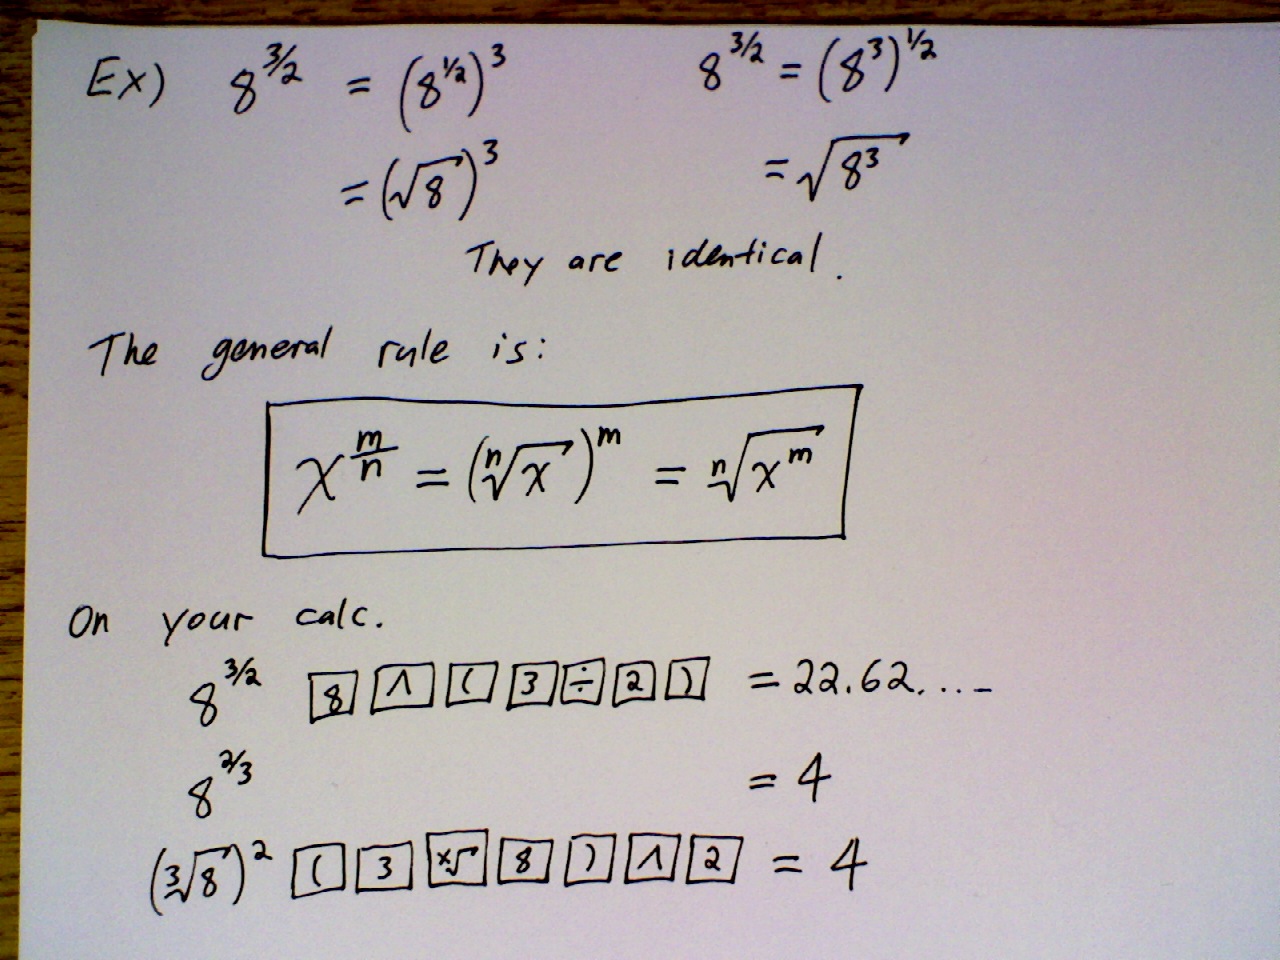 Ex) 8^3/2 = (8^1/2)^3 8^3/2 = (8^3)^1/2
= (√8)^3 = √8^3
They are identical.
The general rule is:
x^m/n = (ⁿ√x)^m = ⁿ√x^m
On your calc.
8^3/2 8 ^ ( 3 ÷ 2 ) = 22.62....
8^2/3 = 4
(³√8)^2 ( 3 ˣ√ 8 ) ^ 2 = 4